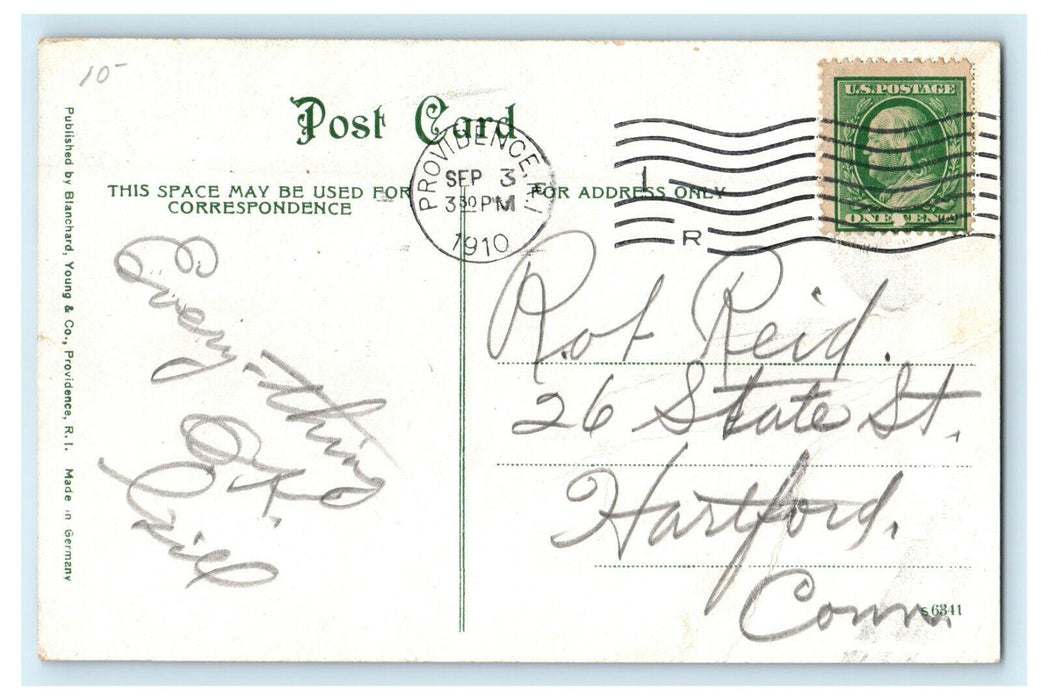 10-
Post Card
THIS SPACE MAY BE USED FOR
CORRESPONDENCE
FOR ADDRESS ONLY
PROVIDENCE, R.I.
SEP 3
3 30 PM
1910
R
U.S. POSTAGE
ONE CENT
Published by Blanchard, Young & Co., Providence, R. I. Made in Germany
Everything
O.K.
Bill
Rob Reid.
26 State St.
Hartford,
Conn.
S 6341